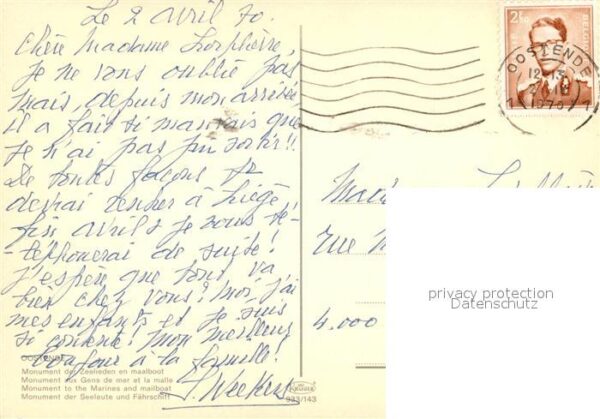 Le 2 avril 70.
Chère Madame
Je ne vous oublie pas
mais, depuis mon arrivée
il a fait si mauvais que
je n'ai pas pu sortir!!
De toutes façons je
devrai rentrer à Liège
fin avril & je vous té-
téphonerai de suite!
J'espère que tout va
bien chez vous? Moi, j'ai
mes enfants et je suis
si contente! Mon meilleur
bonjour à la famille!
OOSTENDE
Monument der Zeelieden en maalboot
Monument aux Gens de mer et la malle
Monument to the Marines and mailboat
Monument der Seeleute und Fährschiff
KRÜGER
983/143
2F50
BELGIE
OOSTENDE
1970
rue
4.000
privacy protection
Datenschutz